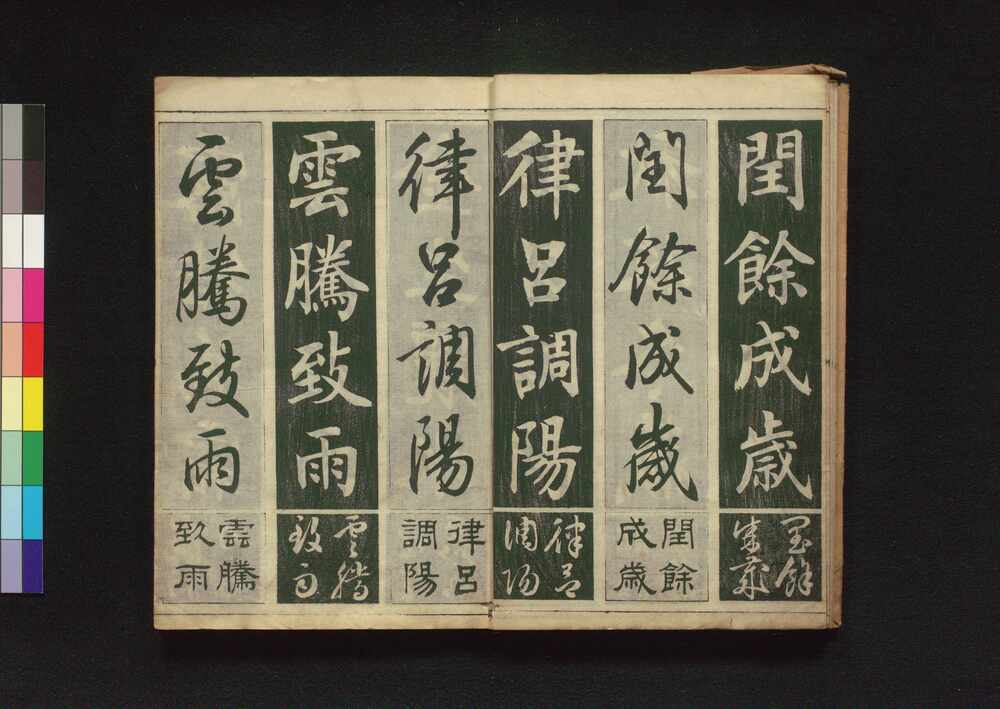 閏餘成歳
閏餘
成歳
閏餘成歳
閏餘
成歳
律呂調陽
律呂
調陽
律呂調陽
律呂
調陽
雲騰致雨
雲騰
致雨
雲騰致雨
雲騰
致雨